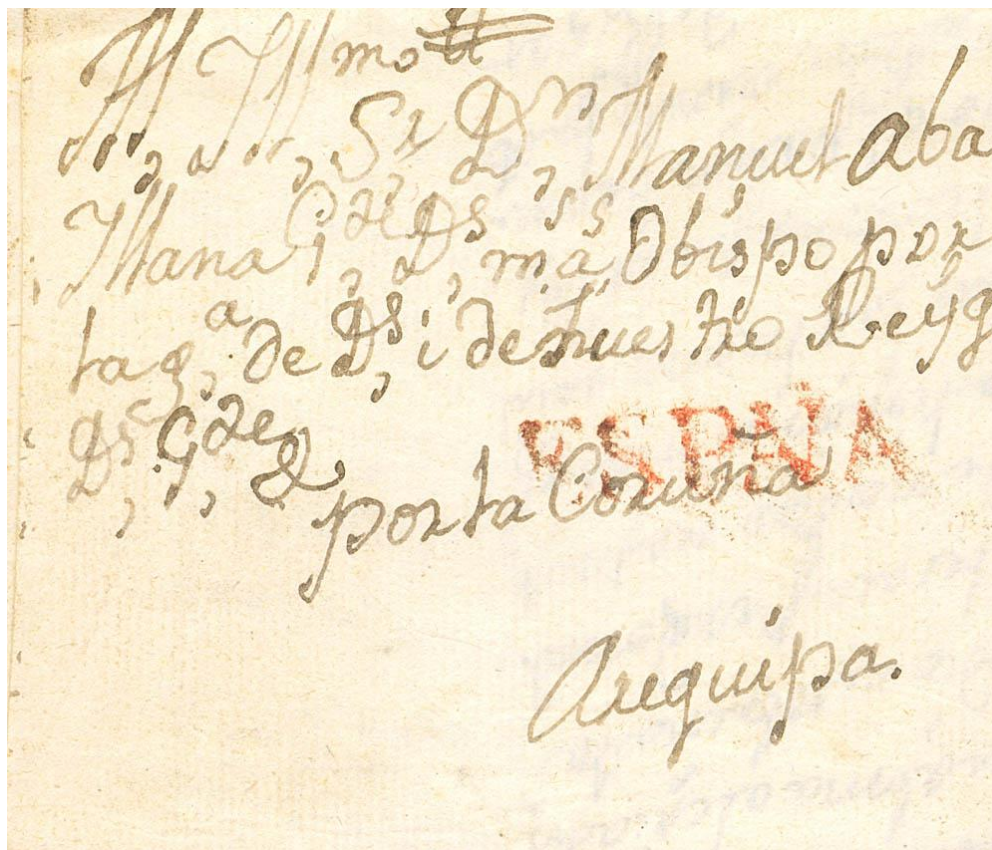 Yllmo
Sr Dn Manuel aba
Yllana Gde Ds ms as Obispo por
la ga de Ds i de nuestro Rey q
Ds Gde &
ESPNA
por la Coruña
Arequipa.